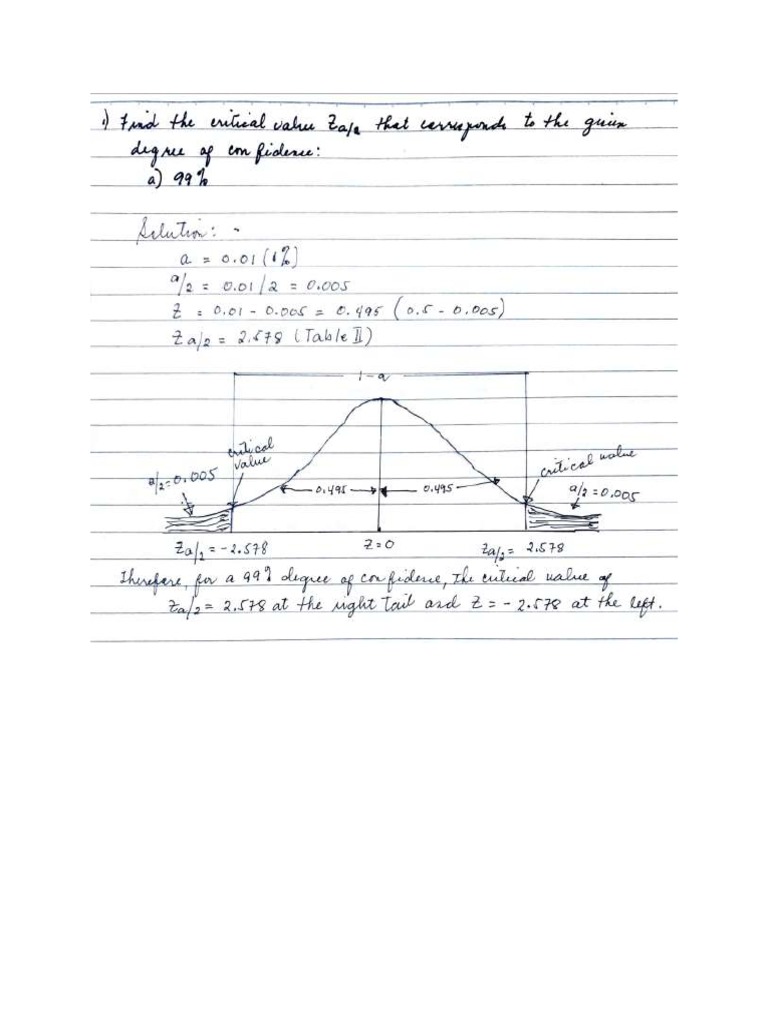 1) Find the critical value Za/2 that corresponds to the given
degree of confidence:
a) 99%
Solution: -
a = 0.01 (1%)
a/2 = 0.01/2 = 0.005
Z = 0.01 - 0.005 = 0.495 (0.5 - 0.005)
Za/2 = 2.578 (Table II)
1-a
critical
value
critical value
a/2=0.005
0.495
0.495
a/2=0.005
Za/2 = -2.578
Z=0
Za/2 = 2.578
Therefore, for a 99% degree of confidence, the critical value of
Za/2 = 2.578 at the right tail and Z = - 2.578 at the left.